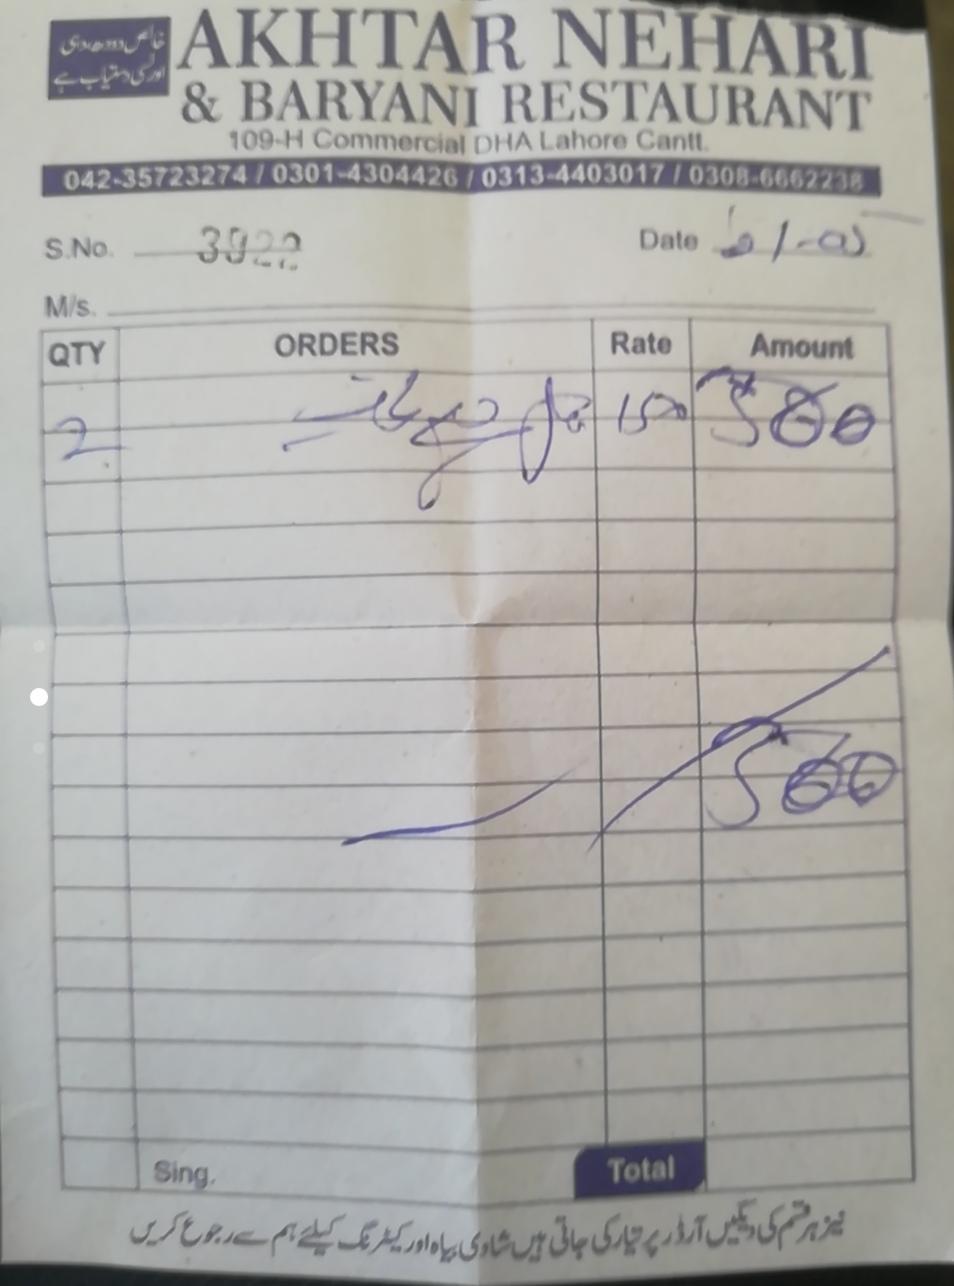 خالص دودھ دہی
اور لسی دستیاب ہے
AKHTAR NEHARI
& BARYANI RESTAURANT
109-H Commercial DHA Lahore Cantt.
042-35723274 / 0301-4304426 / 0313-4403017 / 0308-6662238
S.No. 3922 Date
M/s.
QTY ORDERS Rate Amount
2 150
Sing. Total
نیز ہر قسم کی دیگیں آرڈر پر تیار کی جاتی ہیں شادی بیاہ اور کیٹرنگ کیلئے ہم سے رجوع کریں